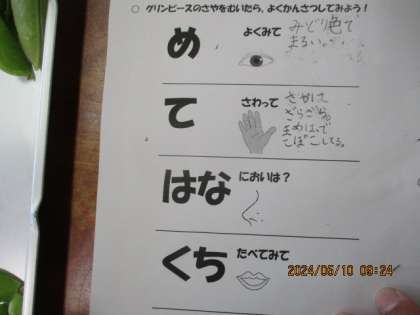 ○ グリンピースのさやをむいたら、よくかんさつしてみよう！
め
よくみて
みどり色で
まるい。
て
さわって
ざらざら。
でこぼこしてる。
はな
においは？
くち
たべてみて
2024/05/10 09:24